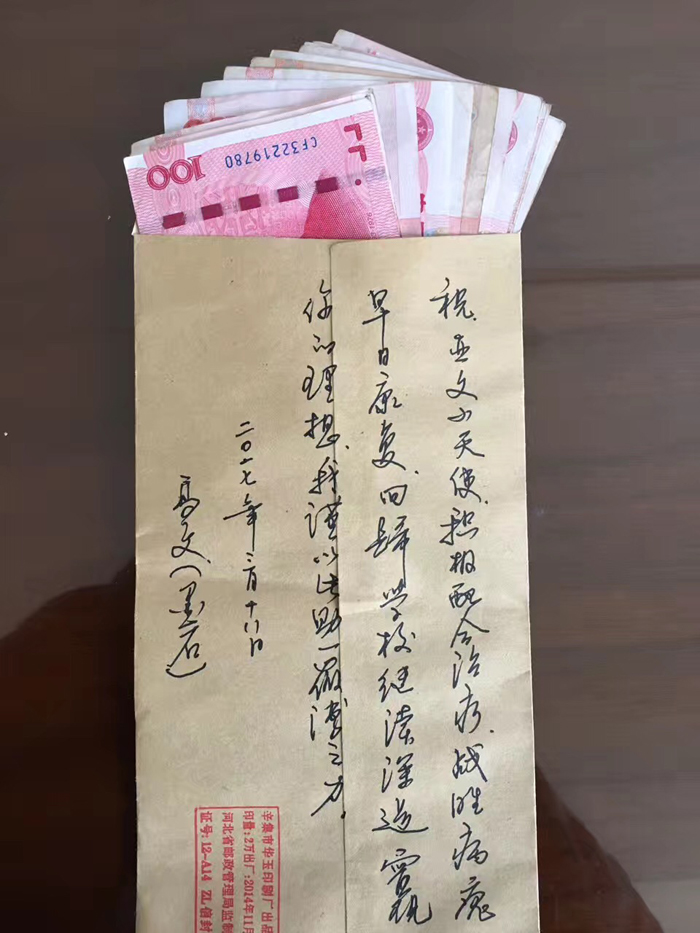 100
CF32219780
祝亚文小天使.积极配合治疗.战胜病魔
早日康复.回歸学校继续深造實現
你的理想.我谨以此助一微薄之力.
二〇一七年三月十八日
高文(墨石)
辛集市华玉印刷厂出品
印量:2万出厂:2014年11月
河北省邮政管理局监制
证号:12-A14 ZL信封